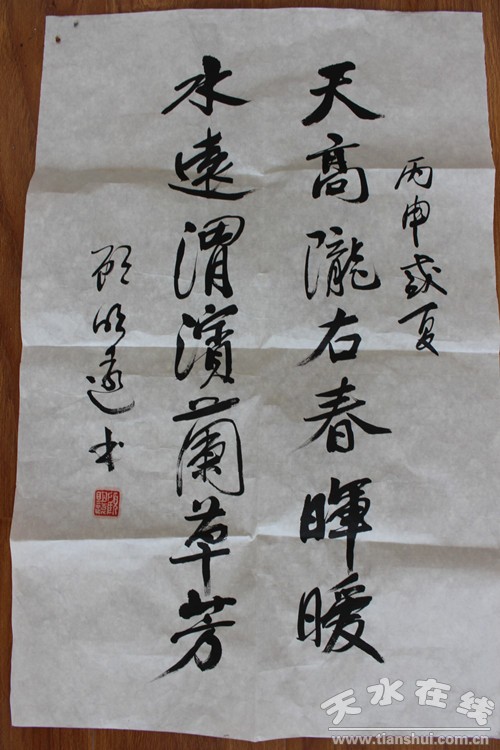 丙申盛夏
天高隴右春暉暖
水遠渭濱蘭草芳
顧明遠书
天水在线
www.tianshui.com.cn